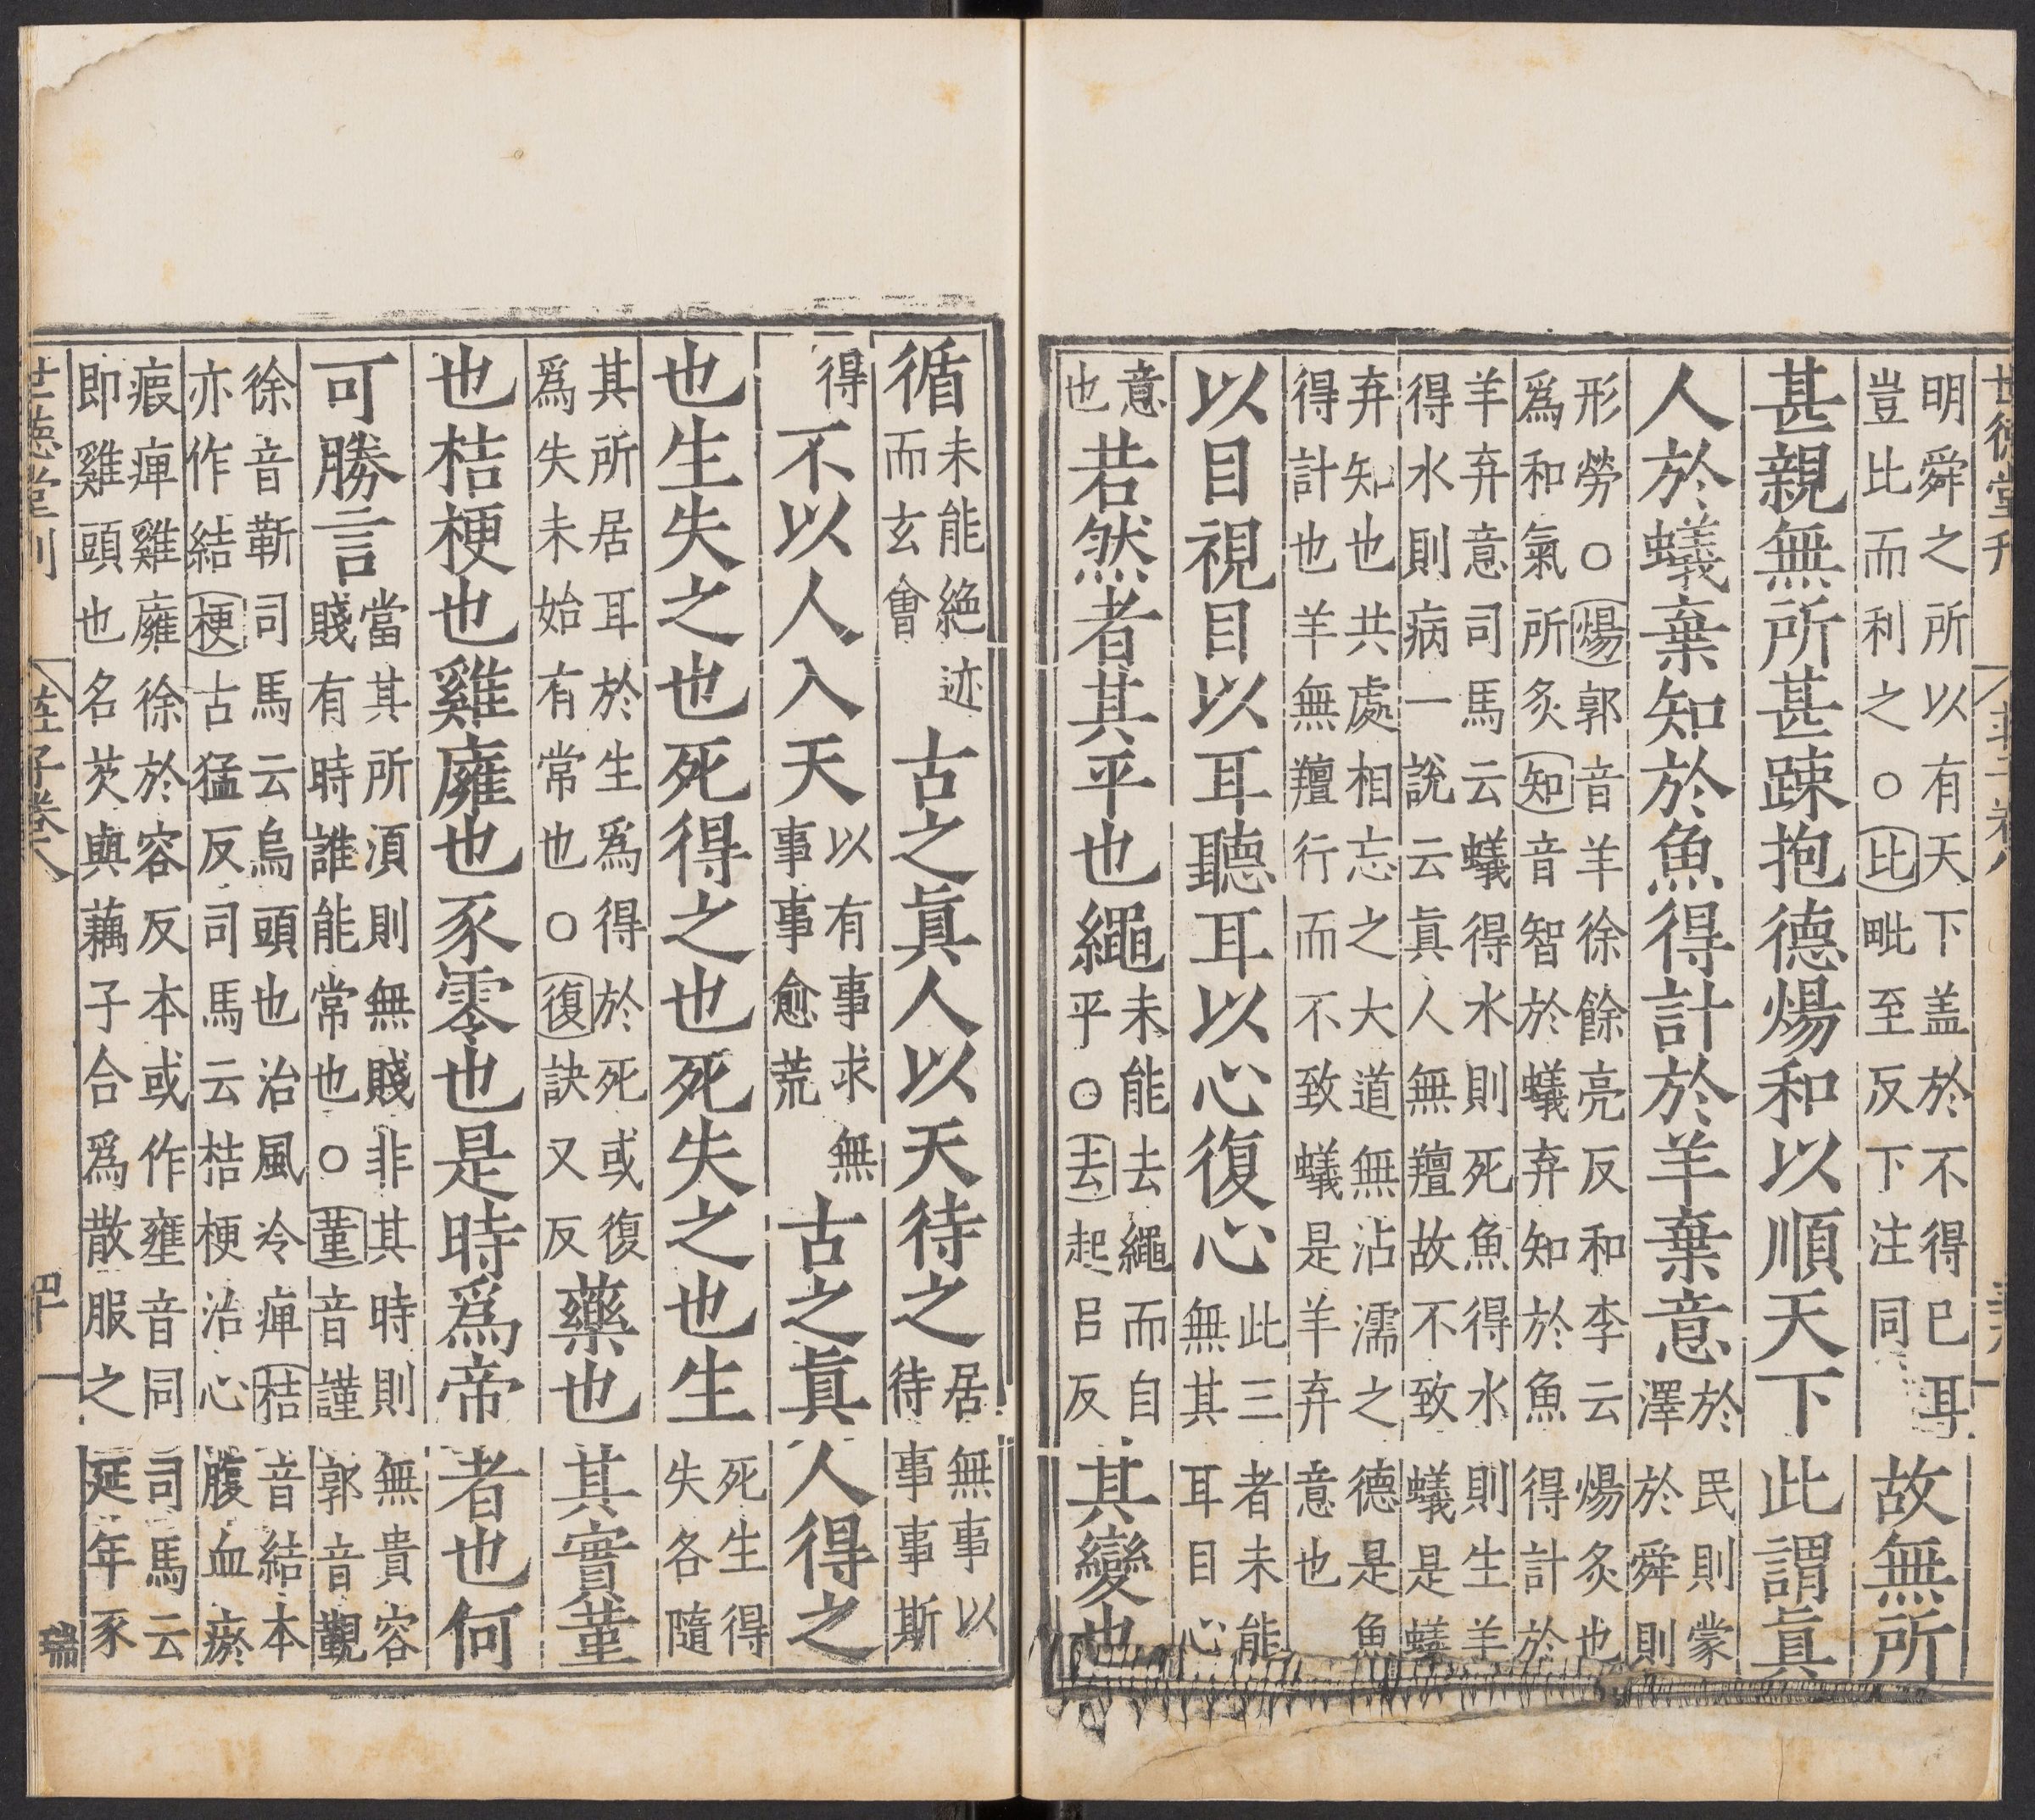 世德堂刊 莊子卷八
明舜之所以有天下盖於不得巳耳
豈比而利之○比毗至反下注同
故無所
甚親無所甚踈抱德煬和以順天下此謂眞
人於蟻棄知於魚得計於羊棄意
於民則蒙
澤於舜則
形勞○煬郭音羊徐餘亮反和李云煬炙也
爲和氣所炙知音智於蟻弃知於魚得計於
羊弃意司馬云蟻得水則死魚得水則生羊
得水則病一說云眞人無羶故不致蟻是蟻
弃知也共處相忘之大道無沾濡之德是魚
得計也羊無羶行而不致蟻是羊弃意也
以目視目以耳聽耳以心復心
此三者未能
無其耳目心
意
也
若然者其平也繩
未能去繩而自
平○去起呂反
其變也
循
未能絶迹
而玄會
古之眞人以天待之
居無事以
待事事斯
得
不以人入天
以有事求無
事事愈荒
古之眞人得之
也生失之也死得之也死失之也生
死生得
失各隨
其所居耳於生爲得於死或復
爲失未始有常也○復訣又反
藥也其實菫
也桔梗也雞癕也豕零也是時爲帝者也何
可勝言
當其所須則無賤非其時則無貴容
賤有時誰能常也○菫音謹郭音覲
徐音靳司馬云烏頭也治風冷痺桔音結本
亦作結梗古猛反司馬云桔梗治心腹血瘀
瘕痺雞癕徐於容反本或作壅音同司馬云
即雞頭也名芡與藕子合爲散服之延年豕
世德堂刊 莊子卷八 四十